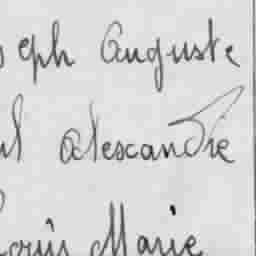 seph Auguste
ul Alexandre
Louis Marie